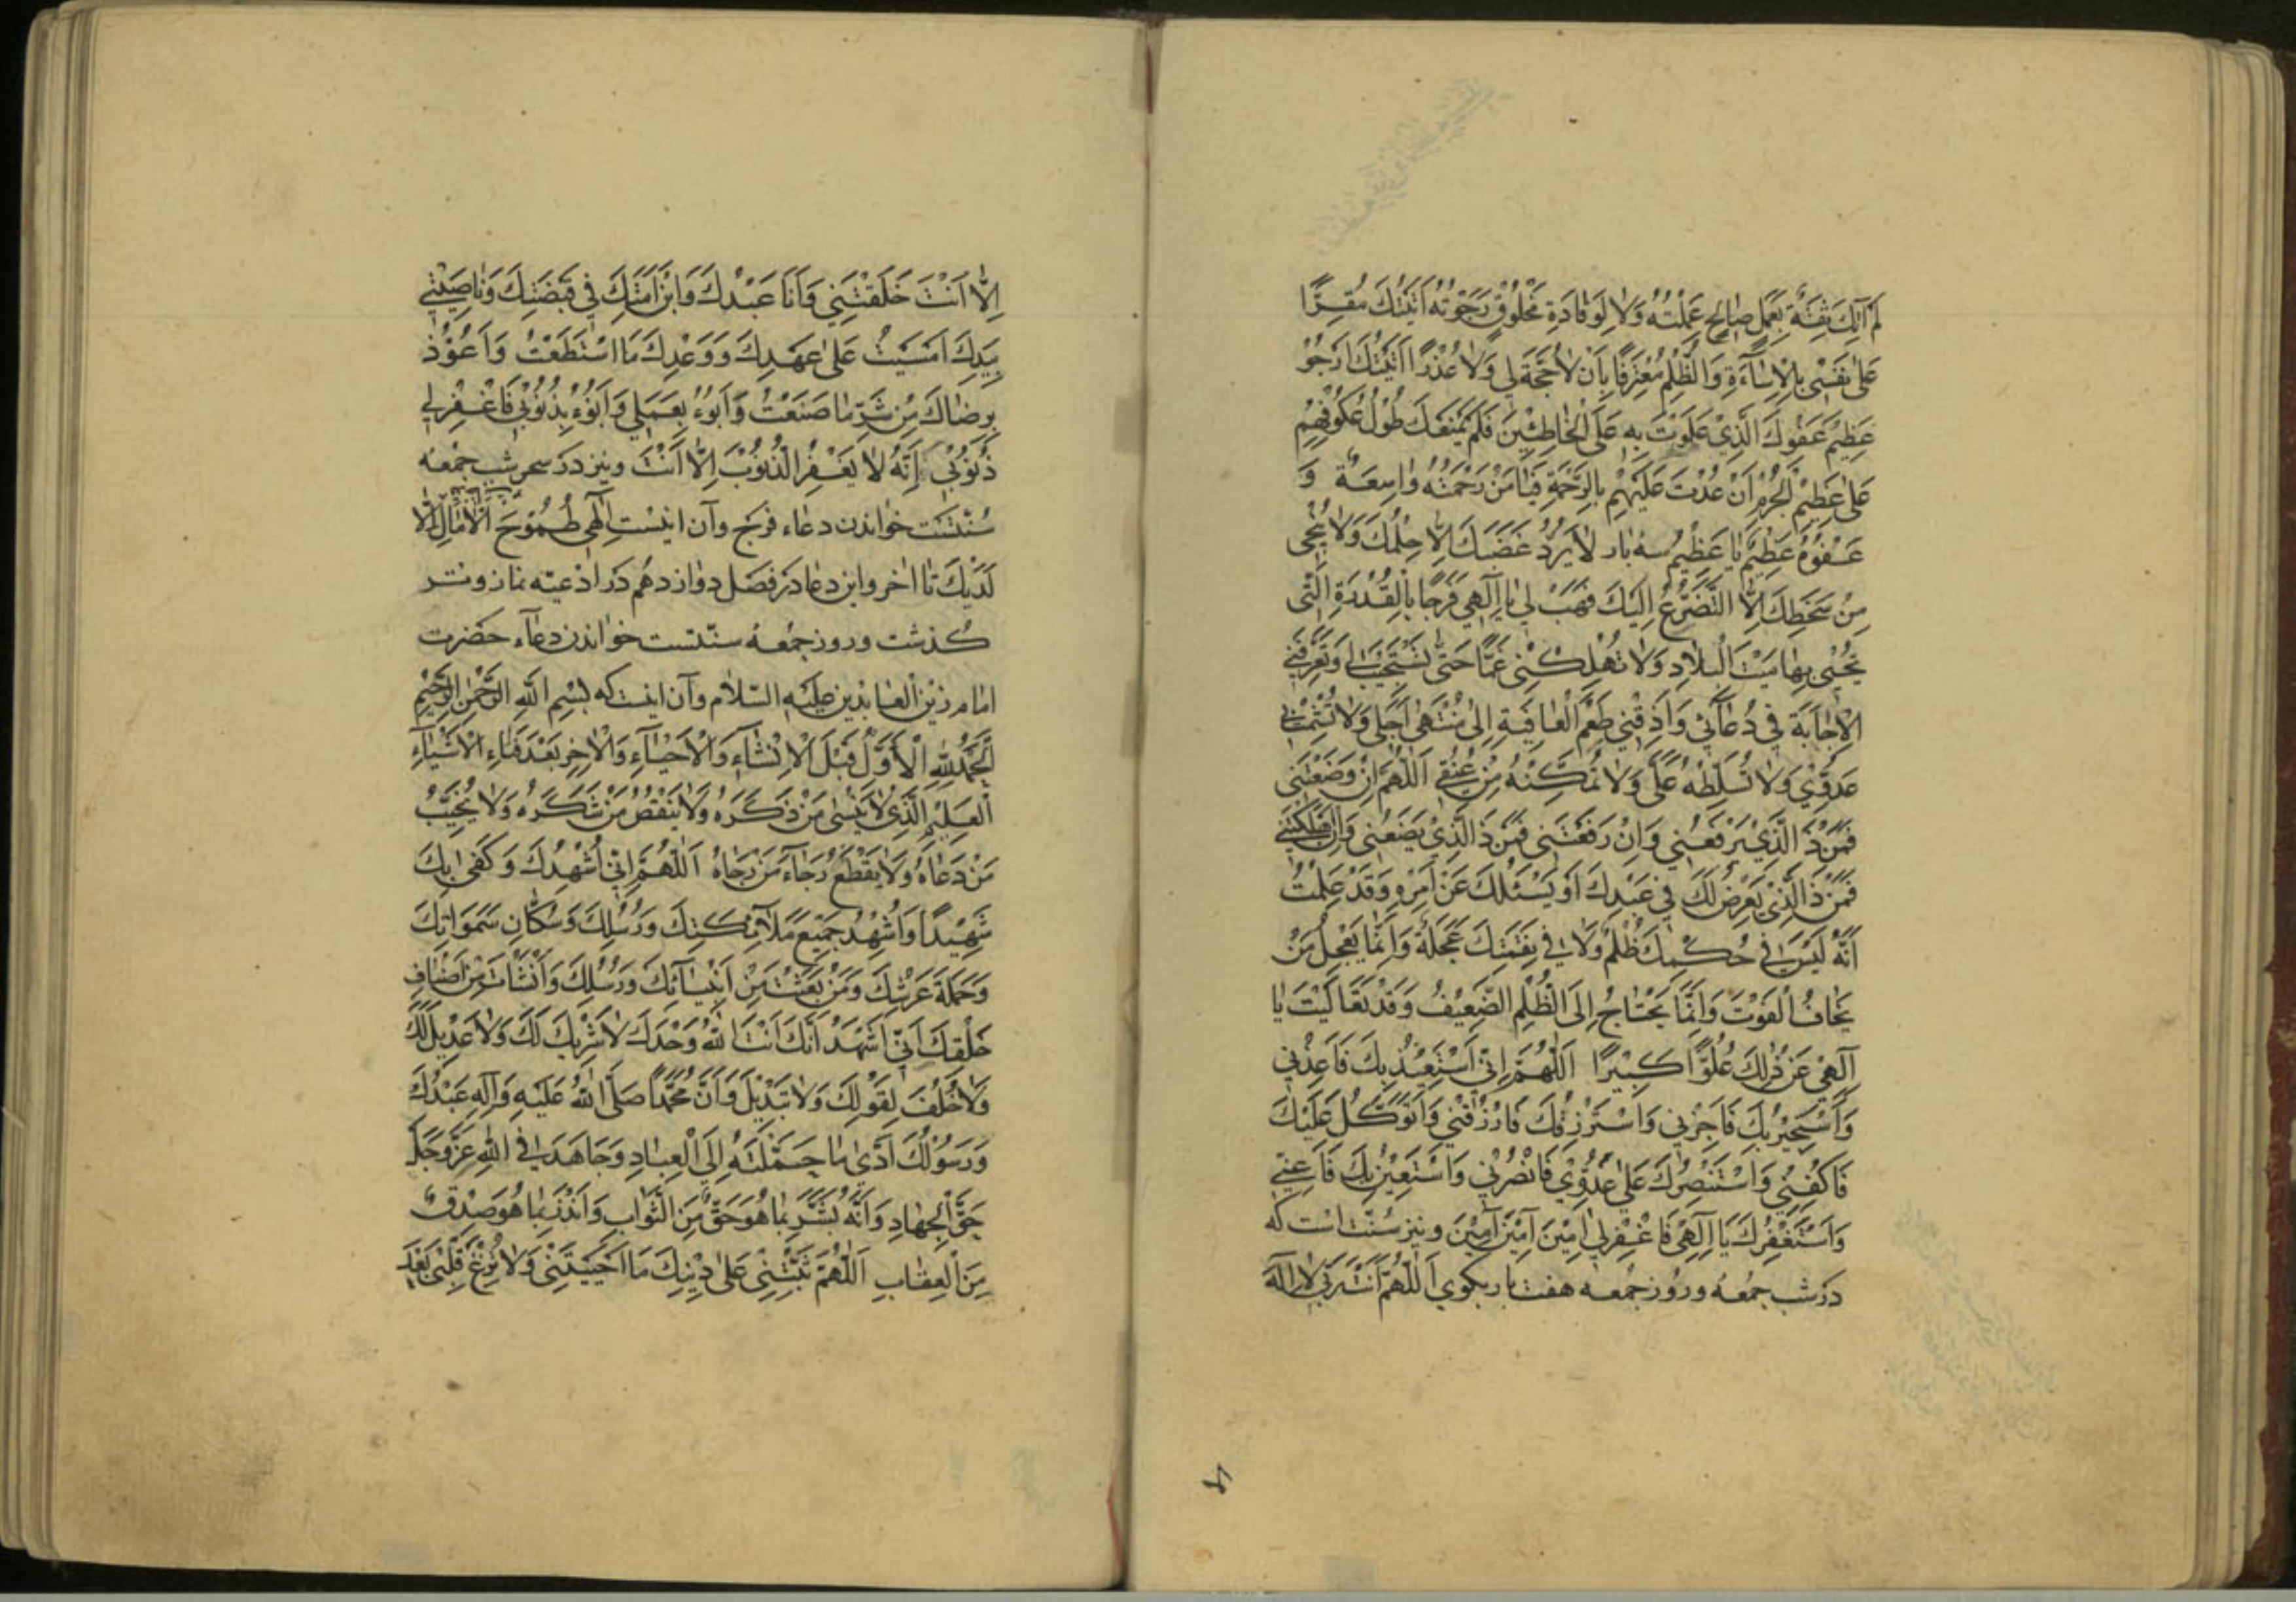 لَمْ آتِكَ ثِقَةً بِعَمَلٍ صَالِحٍ عَمِلْتُهُ وَلَا لِوَفَادَةِ مَخْلُوقٍ رَجَوْتُهُ اَتَيْتُكَ مُقِرًّا
عَلٰى نَفْسِي بِالْاِسَاءَةِ وَالظُّلْمِ مُعْتَرِفًا بِاَنْ لَا حُجَّةَ لِي وَلَا عُذْرًا اَتَيْتُكَ اَرْجُوْ
عَظِيْمَ عَفْوِكَ الَّذِيْ عَلَوْتَ بِهِ عَلَى الْخَاطِئِيْنَ فَلَمْ يَمْنَعْكَ طُوْلُ عُكُوْفِهِمْ
عَلٰى عَظِيْمِ الْجُرْمِ اَنْ عُدْتَ عَلَيْهِمْ بِالرَّحْمَةِ فَيَا مَنْ رَحْمَتُهُ وَاسِعَةٌ وَ
عَفْوُهُ عَظِيْمٌ يَا عَظِيْمُ سه بار لَا يَرُدُّ غَضَبَكَ اِلَّا حِلْمُكَ وَلَا يُنْجِي
مِنْ سَخَطِكَ اِلَّا التَّضَرُّعُ اِلَيْكَ فَهَبْ لِي يَا اِلٰهِي فَرَجًا بِالْقُدْرَةِ الَّتِي
تُحْيِي بِهَا مَيْتَ الْبِلَادِ وَلَا تُهْلِكْنِي غَمًّا حَتّٰى تَسْتَجِيْبَ لِي وَتُعَرِّفَنِي
الْاِجَابَةَ فِي دُعَائِي وَاَذِقْنِي طَعْمَ الْعَافِيَةِ اِلٰى مُنْتَهٰى اَجَلِي وَلَا تُشْمِتْ بِي
عَدُوِّي وَلَا تُسَلِّطْهُ عَلَيَّ وَلَا تُمَكِّنْهُ مِنْ عُنُقِي اَللّٰهُمَّ اِنْ وَضَعْتَنِي
فَمَنْ ذَا الَّذِيْ يَرْفَعُنِي وَاِنْ رَفَعْتَنِي فَمَنْ ذَا الَّذِيْ يَضَعُنِي وَاِنْ اَهْلَكْتَنِي
فَمَنْ ذَا الَّذِيْ يَعْرِضُ لَكَ فِي عَبْدِكَ اَوْ يَسْئَلُكَ عَنْ اَمْرِهِ وَقَدْ عَلِمْتُ
اَنَّهُ لَيْسَ فِي حُكْمِكَ ظُلْمٌ وَلَا فِي نِقْمَتِكَ عَجَلَةٌ وَاِنَّمَا يَعْجَلُ مَنْ
يَخَافُ الْفَوْتَ وَاِنَّمَا يَحْتَاجُ اِلَى الظُّلْمِ الضَّعِيْفُ وَقَدْ تَعَالَيْتَ يَا
اِلٰهِي عَنْ ذٰلِكَ عُلُوًّا كَبِيْرًا اَللّٰهُمَّ اِنِّي اَسْتَعِيْذُ بِكَ فَاَعِذْنِي
وَاَسْتَجِيْرُ بِكَ فَاَجِرْنِي وَاَسْتَرْزِقُكَ فَارْزُقْنِي وَاَتَوَكَّلُ عَلَيْكَ
فَاكْفِنِي وَاَسْتَنْصِرُكَ عَلٰى عَدُوِّي فَانْصُرْنِي وَاَسْتَعِيْنُ بِكَ فَاَعِنِّي
وَاَسْتَغْفِرُكَ يَا اِلٰهِي فَاغْفِرْ لِي اٰمِيْنَ اٰمِيْنَ اٰمِيْنَ ونیز سنّت است که
در شب جمعه وروز جمعه هفت بار بکوی اَللّٰهُمَّ اَنْتَ رَبِّي لَا اِلٰهَ
اِلَّا اَنْتَ خَلَقْتَنِي وَاَنَا عَبْدُكَ وَابْنُ اَمَتِكَ فِي قَبْضَتِكَ وَنَاصِيَتِي
بِيَدِكَ اَمْسَيْتُ عَلٰى عَهْدِكَ وَوَعْدِكَ مَا اسْتَطَعْتُ وَاَعُوْذُ
بِرِضَاكَ مِنْ شَرِّ مَا صَنَعْتُ وَاَبُوْءُ بِعَمَلِي وَاَبُوْءُ بِذُنُوْبِي فَاغْفِرْ لِي
ذُنُوْبِي اِنَّهُ لَا يَغْفِرُ الذُّنُوْبَ اِلَّا اَنْتَ ونیز در سحر شب جمعه
سنّتست خواندن دعاء فرج وآن اینست اِلٰهِي طُمُوْحُ الْاٰمَالِ اِلَّا
لَدَيْكَ تا اخر واین دعا در فصل دوازدهم در ادعیه نماز وتر
کذشت وروز جمعه سنّتست خواندن دعاء حضرت
امام زین العابدین علیه السّلام وآن اینست که بِسْمِ اللّٰهِ الرَّحْمٰنِ الرَّحِيْمِ
اَلْحَمْدُ لِلّٰهِ الْاَوَّلِ قَبْلَ الْاِنْشَاءِ وَالْاَحْيَاءِ وَالْاٰخِرِ بَعْدَ فَنَاءِ الْاَشْيَاءِ
الْعَلِيْمِ الَّذِي لَا يَنْسٰى مَنْ ذَكَرَهُ وَلَا يَنْقُصُ مَنْ شَكَرَهُ وَلَا يُخَيِّبُ
مَنْ دَعَاهُ وَلَا يَقْطَعُ رَجَاءَ مَنْ رَجَاهُ اَللّٰهُمَّ اِنِّي اُشْهِدُكَ وَكَفٰى بِكَ
شَهِيْدًا وَاُشْهِدُ جَمِيْعَ مَلَائِكَتِكَ وَرُسُلِكَ وَسُكَّانِ سَمٰوَاتِكَ
وَحَمَلَةَ عَرْشِكَ وَمَنْ بَعَثْتَ مِنْ اَنْبِيَائِكَ وَرُسُلِكَ وَاَنْشَاْتَ مِنْ اَصْنَافِ
خَلْقِكَ اَنِّي اَشْهَدُ اَنَّكَ اَنْتَ اللّٰهُ وَحْدَكَ لَا شَرِيْكَ لَكَ وَلَا عَدِيْلَ لَكَ
وَلَا خُلْفَ لِقَوْلِكَ وَلَا تَبْدِيْلَ وَاَنَّ مُحَمَّدًا صَلَّى اللّٰهُ عَلَيْهِ وَآلِهِ عَبْدُكَ
وَرَسُوْلُكَ اَدّٰى مَا حَمَّلْتَهُ اِلَى الْعِبَادِ وَجَاهَدَ فِي اللّٰهِ عَزَّ وَجَلَّ
حَقَّ الْجِهَادِ وَاَنَّهُ بَشَّرَ بِمَا هُوَ حَقٌّ مِنَ الثَّوَابِ وَاَنْذَرَ بِمَا هُوَ صِدْقٌ
مِنَ الْعِقَابِ اَللّٰهُمَّ ثَبِّتْنِي عَلٰى دِيْنِكَ مَا اَحْيَيْتَنِي وَلَا تُزِغْ قَلْبِي بَعْدَ